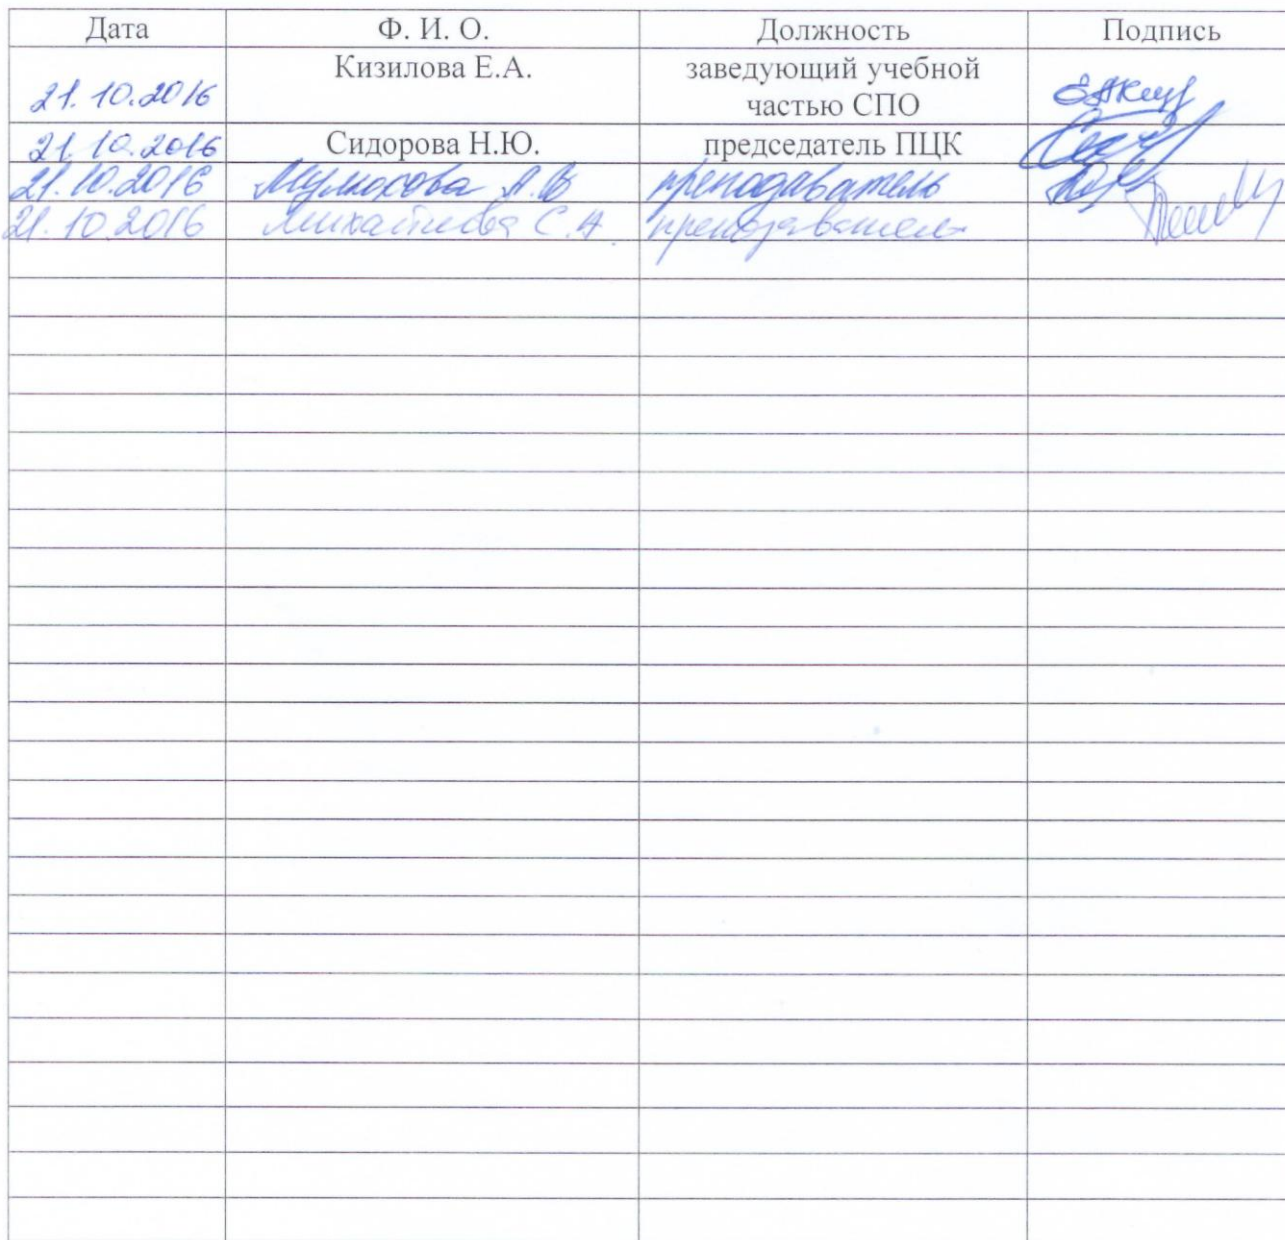 Дата Ф. И. О. Должность Подпись
21.10.2016 Кизилова Е.А. заведующий учебной
частью СПО
21.10.2016 Сидорова Н.Ю. председатель ПЦК
21.10.2016 А.В. преподаватель
21.10.2016 Михайлова С.А. преподаватель